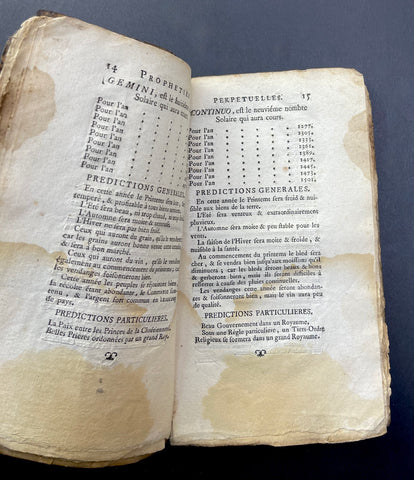 14 PROPHETIES
GEMINI, est le huitiéme
Solaire qui aura cours.
Pour l'an
Pour l'an
Pour l'an
Pour l'an
Pour l'an
Pour l'an
Pour l'an
Pour l'an
PREDICTIONS GENERALES.
En cette année le Printems sera
temperé, & profitable
L'Eté sera beau, ni trop chaud, ni trop
L'Automne sera moite
L'Hiver ne sera pas bien froid
Ceux qui auront du grain,
car les grains auront bonne
& sera à bon marché.
Ceux qui auront du vin, qu'ils le vendent
également au commencement
les vendanges
Cette année les peuples se réjouiront bien,
la récolte étant abondante, le Commerce
tenu, & l'argent fort commun dans
de pays.
PREDICTIONS PARTICULIERES.
La Paix entre les Princes de la Chrétienneté.
Belles Prieres ordonnées par un grand Pape.
PERPETUELLES. 15
CONTINUO, est le neuviéme nombre
Solaire qui aura cours.
Pour l'an 1277.
Pour l'an 1305.
Pour l'an 1333.
Pour l'an 1361.
Pour l'an 1389.
Pour l'an 1417.
Pour l'an 1445.
Pour l'an 1473.
Pour l'an 1501.
PREDICTIONS GENERALES.
En cette année le Printems sera froid & nuisible
aux biens de la terre.
L'Eté sera venteux & extraordinairement
pluvieux.
L'Automne sera moite & peu stable pour les
vents.
La saison de l'Hiver sera moite & froide, &
nuisible à la santé.
Au commencement du printems le bled sera
cher, & se vendra bien jusqu'aux moissons qu'il
diminuera; car les bleds seront beaux & bons
en quelque endroit, mais ils seront difficiles à
resserrer à cause des pluies continuelles.
Les vendanges cette année seront abondantes
& foisonneront bien, mais le vin aura peu
de qualité.
PREDICTIONS PARTICULIERES.
Beau Gouvernement dans un Royaume,
Sous une Régle particuliere, un Tiers-Ordre
Religieux se seemera dans un grand Royaume.